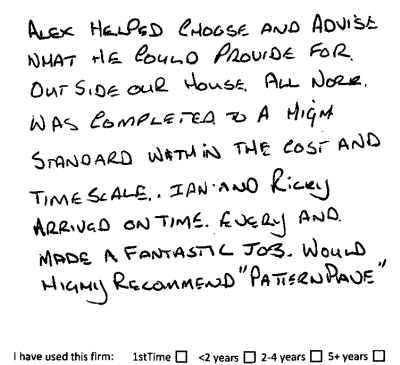 ALEX HELPED CHOOSE AND ADVISE
WHAT HE COULD PROVIDE FOR.
OUTSIDE OUR HOUSE. ALL WORK.
WAS COMPLETED TO A HIGH
STANDARD WITHIN THE COST AND
TIMESCALE.. IAN AND RICKY
ARRIVED ON TIME. EVERY AND.
MADE A FANTASTIC JOB. WOULD
HIGHLY RECOMMEND "PATTERNPAVE"
I have used this firm: 1stTime ☐ <2 years ☐ 2-4 years ☐ 5+ years ☐